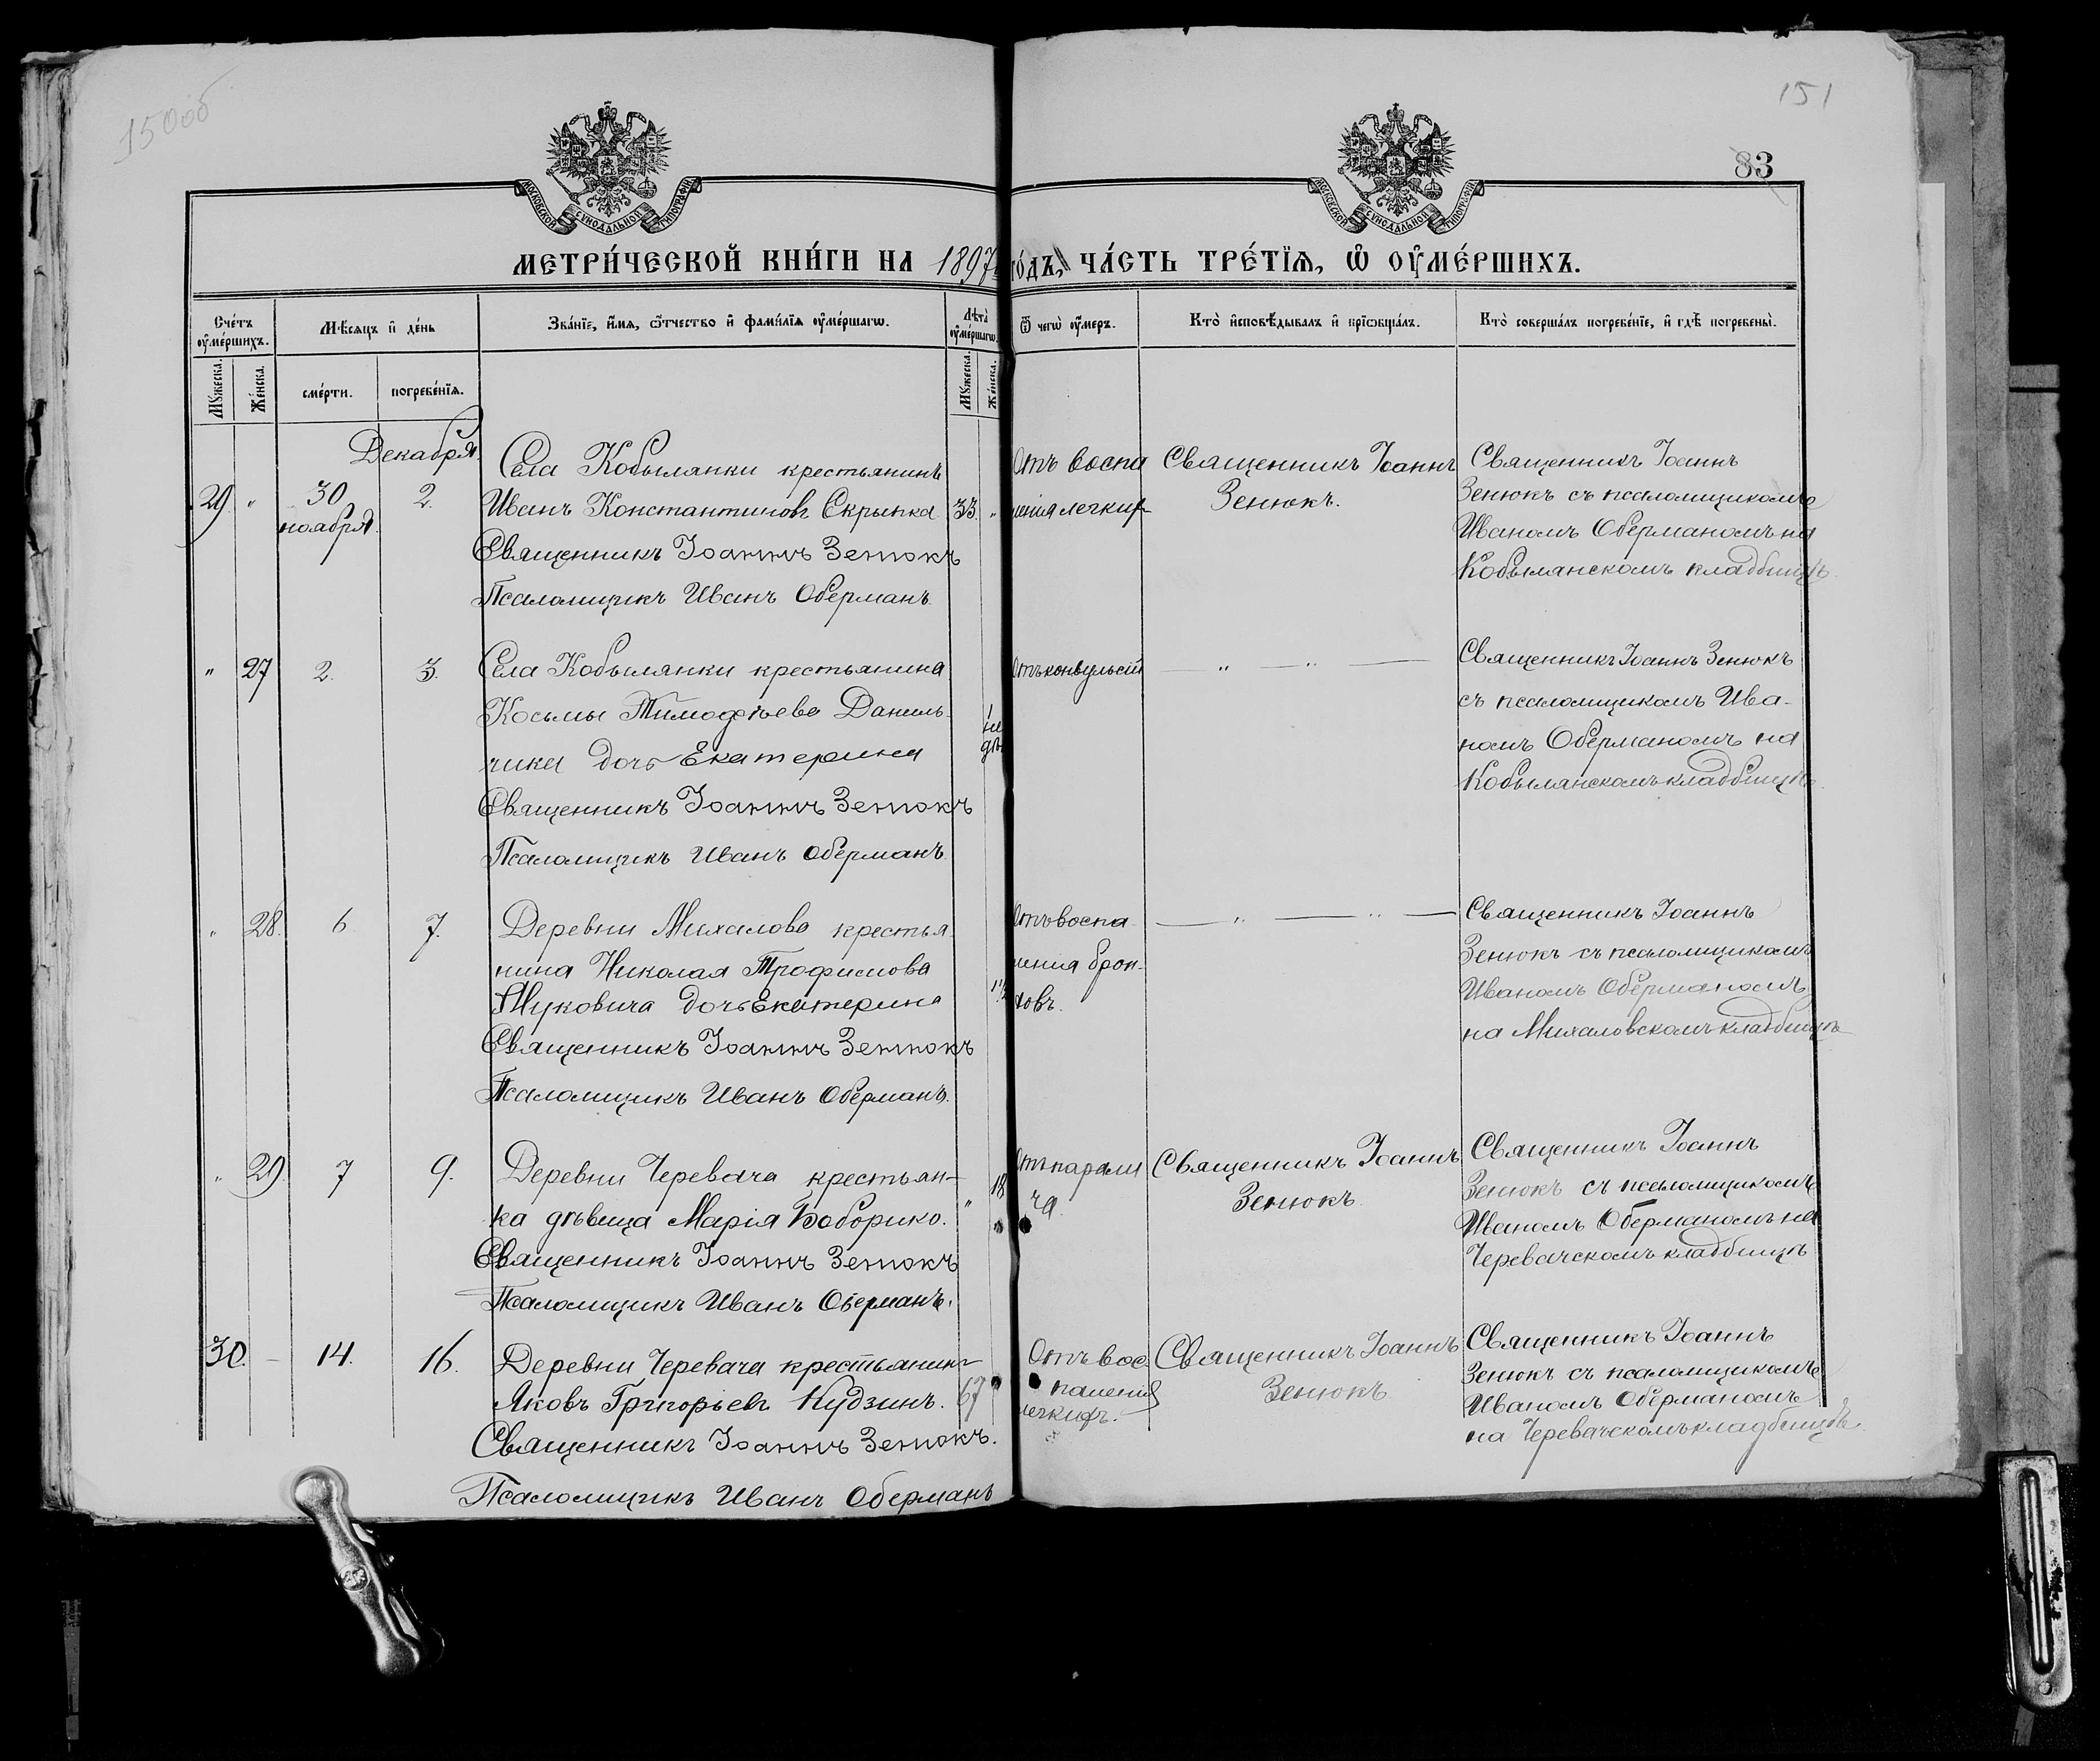 150об
151
83
МОСКОВСКОЙ СѴНОДАЛЬНОЙ ТИПОГРАФІИ
МОСКОВСКОЙ СѴНОДАЛЬНОЙ ТИПОГРАФІИ
МЕТРИ́ЧЕСКОЙ КНИ́ГИ НА 1897 го́дъ, ЧА́СТЬ ТРЕ́ТЇЯ, Ѡ҆ ОУ҆МЕ́РШИХЪ.
Сче́тъ оу҆ме́ршихъ.
Мѣ́сяцъ и҆ де́нь
Зва́нїе, и҆́мя, ѻ҆́тчество и҆ фами́лїя оу҆ме́ршагѡ.
Лѣта̀ оу҆ме́ршагѡ.
Ѿ чегѡ̀ оу҆́меръ.
Кто̀ и҆сповѣ́дывалъ и҆ прїѡбща́лъ.
Кто̀ соверша́лъ погребе́нїе, и҆ гдѣ̀ погребены̀.
Мꙋжеска.
Же́нска.
сме́рти.
погребе́нїя.
Мꙋжеска.
Же́нска.
Декабря
29. " 30 ноября. 2.
Села Кобылянки крестьянинъ
Иванъ Константиновъ Скрыпка 33. "
Священникъ Іоаннъ Зенюкъ
Псаломщикъ Иванъ Оберманъ
Отъ воспа
ленія легких
Священникъ Іоаннъ
Зенюкъ.
Священникъ Іоаннъ
Зенюкъ съ псаломщикомъ
Иваномъ Оберманомъ на
Кобылянскомъ кладбищѣ.
" 27 2. 3.
Села Кобылянки крестьянина
Косьмы Тимофѣева Даниль-
чика дочь Екатерина
1 не дѣ
Священникъ Іоаннъ Зенюкъ
Псаломщикъ Иванъ Оберманъ
Отъ конвульсій
— " — " —
Священникъ Іоаннъ Зенюкъ
съ псаломщикомъ Ива-
номъ Оберманомъ на
Кобылянскомъ кладбищѣ.
" 28. 6 7.
Деревни Михалова крестья
нина Николая Трофимова
Жуковича дочь Екатерина
Священникъ Іоаннъ Зенюкъ
Псаломщикъ Иванъ Оберманъ.
Отъ воспа
ленія брон-
ховъ.
— " — " —
Священникъ Іоаннъ
Зенюкъ съ псаломщикомъ
Иваномъ Оберманомъ
на Михаловскомъ кладбищѣ
" 29. 7 9.
Деревни Черевача крестьян-
ка дѣвица Марія Боборико. " 18
Священникъ Іоаннъ Зенюкъ
Псаломщикъ Иванъ Оберманъ.
Отъ парали
ча.
Священникъ Іоаннъ
Зенюкъ
Священникъ Іоаннъ
Зенюкъ съ псаломщикомъ
Иваномъ Оберманомъ на
Черевачскомъ кладбищѣ
30. — 14. 16.
Деревни Черевача крестьянинъ
Яковъ Григорьевъ Кудзинъ. 67 "
Священникъ Іоаннъ Зенюкъ.
Псаломщикъ Иванъ Оберманъ
Отъ вос
паленія
легкихъ.
Священникъ Іоаннъ
Зенюкъ
Священникъ Іоаннъ
Зенюкъ съ псаломщикомъ
Иваномъ Оберманомъ
на Черевачскомъ кладбищѣ.